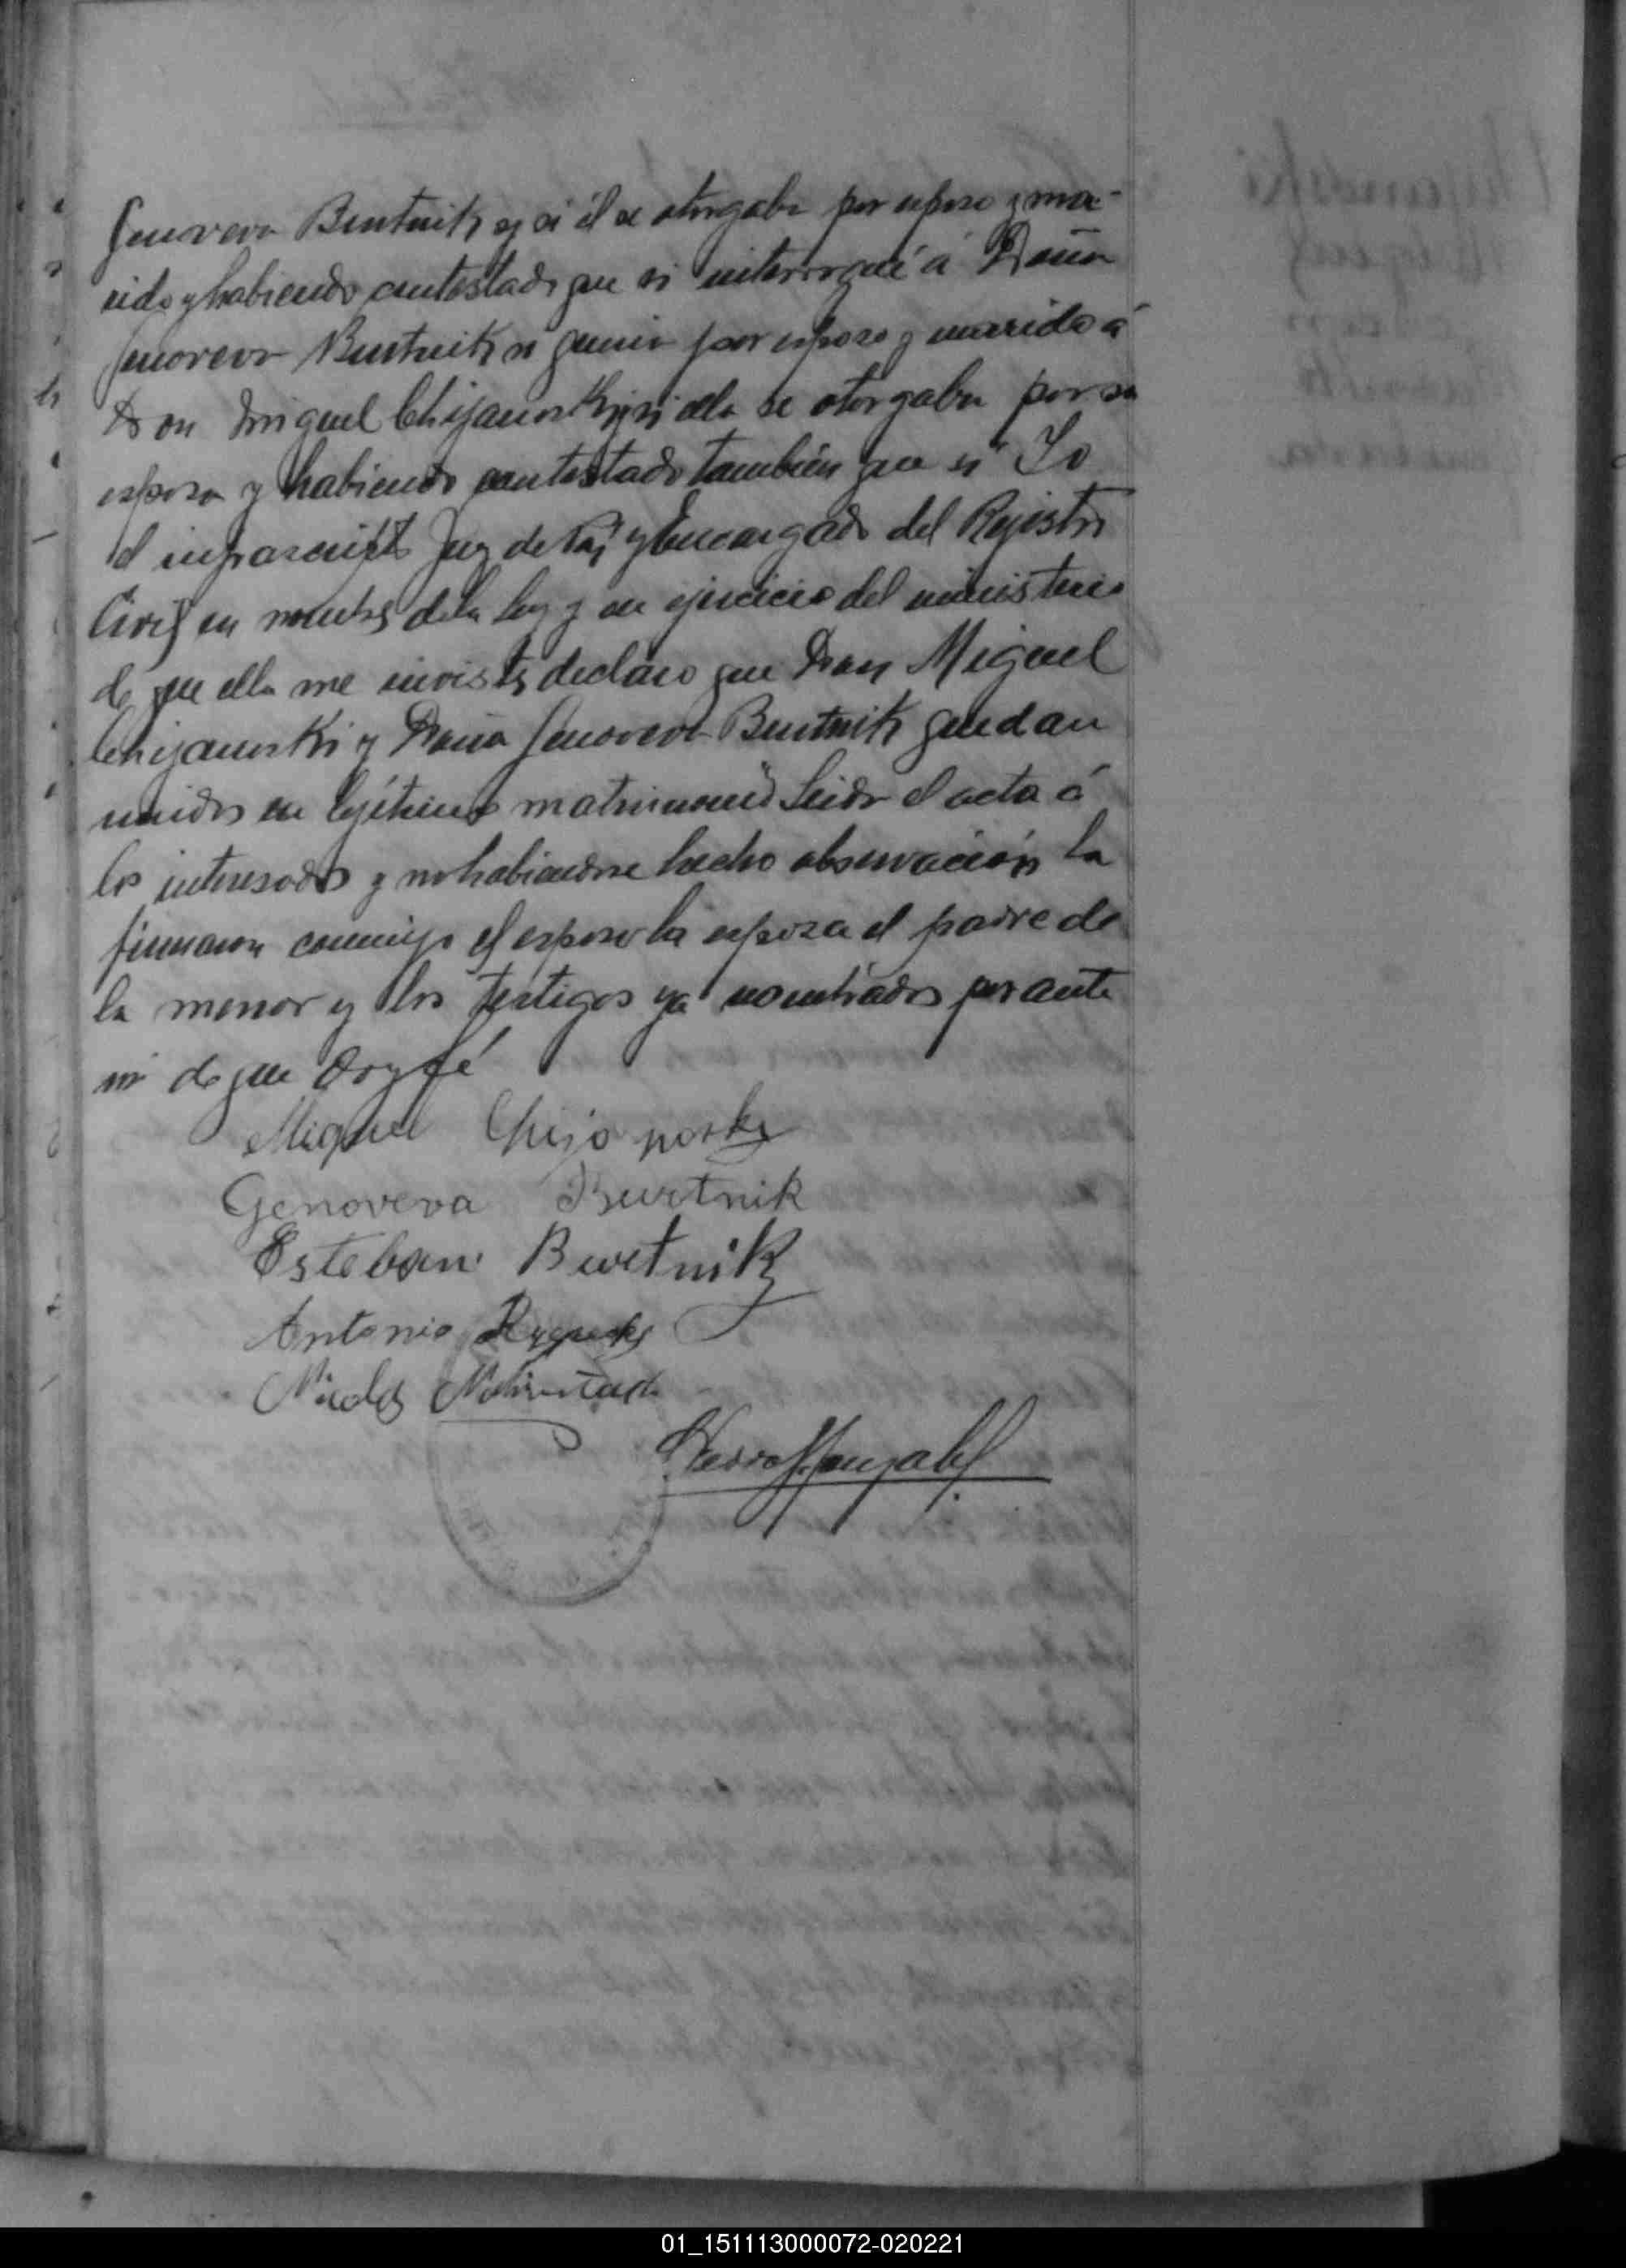 Genoveva Burtnik y si él se otorgaba por esposo y ma-
rido y habiendo contestado que si interrogué á Doña
Genoveva Burtnik si queria por esposo y marido á
Don Miguel Chijanoski y si ella se otorgaba por su
esposa y habiendo contestado tambien que si Yo
el infrascripto Juez de Paz y Encargado del Rejistro
Civil en nombre de la ley y en ejercicio del ministerio
de que ella me inviste declaro que Don Miguel
Chijanoski y Doña Genoveva Burtnik quedan
unidos en lejítimo matrimonio Leida el acta á
los interesados y no habiendose hecho observación la
firmaron conmigo el esposo la esposa el padre de
la menor y los testigos ya nombrados por ante
mi de que doy fé
Miguel Chijanoski
Genoveva Burtnik
Esteban Burtnik
Antonio
Nicolas
Pedro
01_151113000072-020221